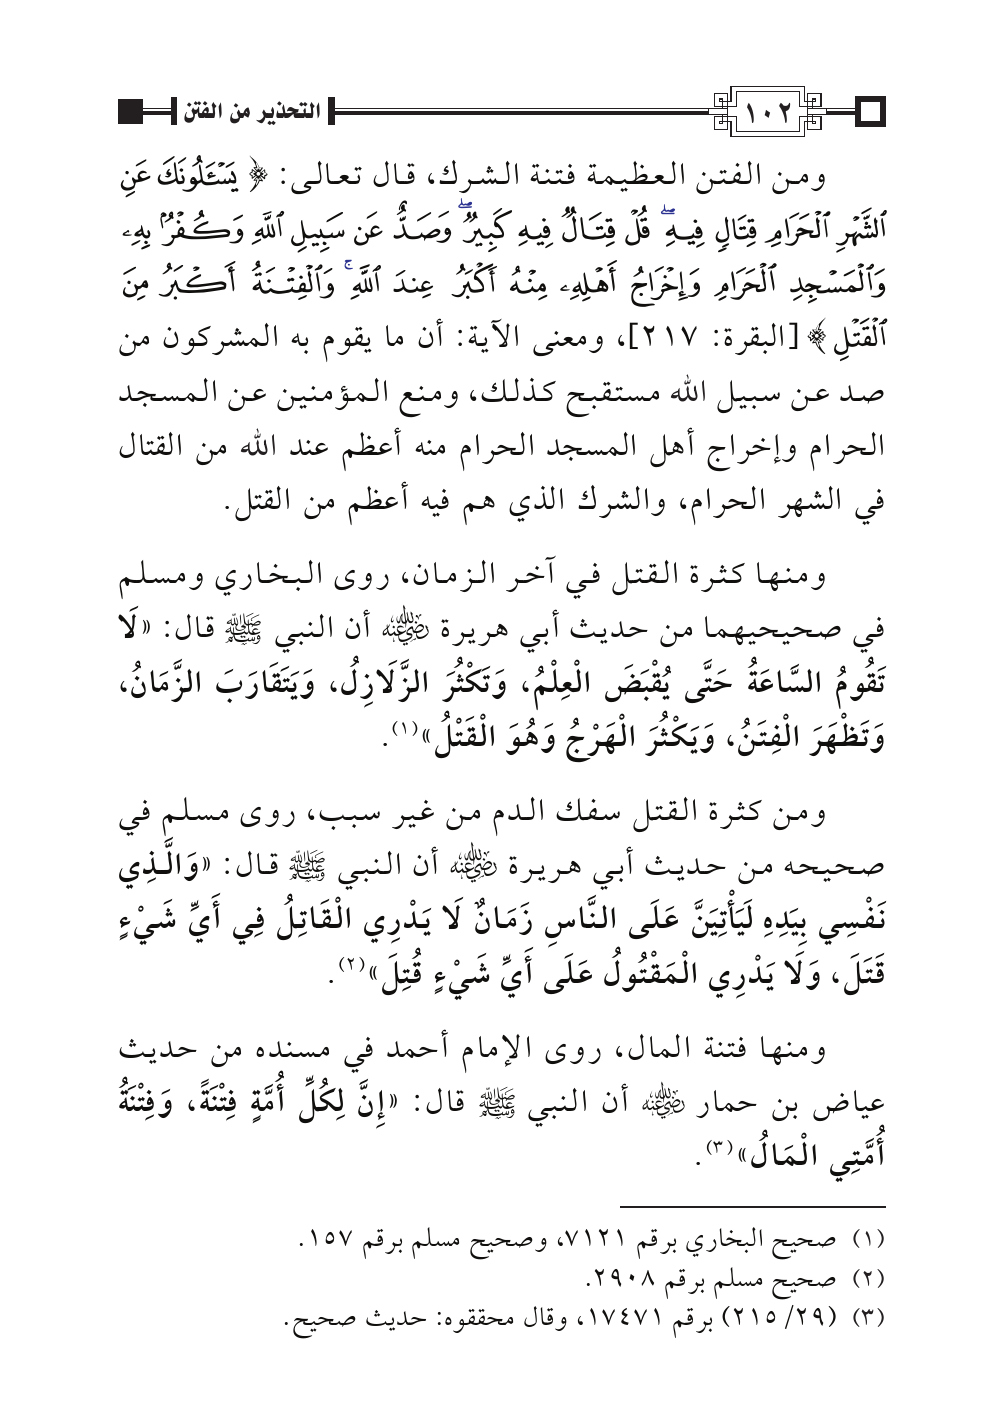 ١٠٢ التحذير من الفتن
ومن الفتن العظيمة فتنة الشرك، قال تعالى: ﴿ يَسْـَٔلُونَكَ عَنِ
ٱلشَّهْرِ ٱلْحَرَامِ قِتَالٍ فِيهِ ۖ قُلْ قِتَالٌ فِيهِ كَبِيرٌ ۖ وَصَدٌّ عَن سَبِيلِ ٱللَّهِ وَكُفْرٌۢ بِهِۦ
وَٱلْمَسْجِدِ ٱلْحَرَامِ وَإِخْرَاجُ أَهْلِهِۦ مِنْهُ أَكْبَرُ عِندَ ٱللَّهِ ۚ وَٱلْفِتْنَةُ أَكْبَرُ مِنَ
ٱلْقَتْلِ ﴾ [البقرة: ٢١٧]، ومعنى الآية: أن ما يقوم به المشركون من
صد عن سبيل الله مستقبح كذلك، ومنع المؤمنين عن المسجد
الحرام وإخراج أهل المسجد الحرام منه أعظم عند الله من القتال
في الشهر الحرام، والشرك الذي هم فيه أعظم من القتل.
ومنها كثرة القتل في آخر الزمان، روى البخاري ومسلم
في صحيحيهما من حديث أبي هريرة رضي الله عنه أن النبي ﷺ قال: «لَا
تَقُومُ السَّاعَةُ حَتَّى يُقْبَضَ الْعِلْمُ، وَتَكْثُرَ الزَّلَازِلُ، وَيَتَقَارَبَ الزَّمَانُ،
وَتَظْهَرَ الْفِتَنُ، وَيَكْثُرَ الْهَرْجُ وَهُوَ الْقَتْلُ»(١).
ومن كثرة القتل سفك الدم من غير سبب، روى مسلم في
صحيحه من حديث أبي هريرة رضي الله عنه أن النبي ﷺ قال: «وَالَّذِي
نَفْسِي بِيَدِهِ لَيَأْتِيَنَّ عَلَى النَّاسِ زَمَانٌ لَا يَدْرِي الْقَاتِلُ فِي أَيِّ شَيْءٍ
قَتَلَ، وَلَا يَدْرِي الْمَقْتُولُ عَلَى أَيِّ شَيْءٍ قُتِلَ»(٢).
ومنها فتنة المال، روى الإمام أحمد في مسنده من حديث
عياض بن حمار رضي الله عنه أن النبي ﷺ قال: «إِنَّ لِكُلِّ أُمَّةٍ فِتْنَةً، وَفِتْنَةُ
أُمَّتِي الْمَالُ»(٣).
(١) صحيح البخاري برقم ٧١٢١، وصحيح مسلم برقم ١٥٧.
(٢) صحيح مسلم برقم ٢٩٠٨.
(٣) (٢٩/ ٢١٥) برقم ١٧٤٧١، وقال محققوه: حديث صحيح.